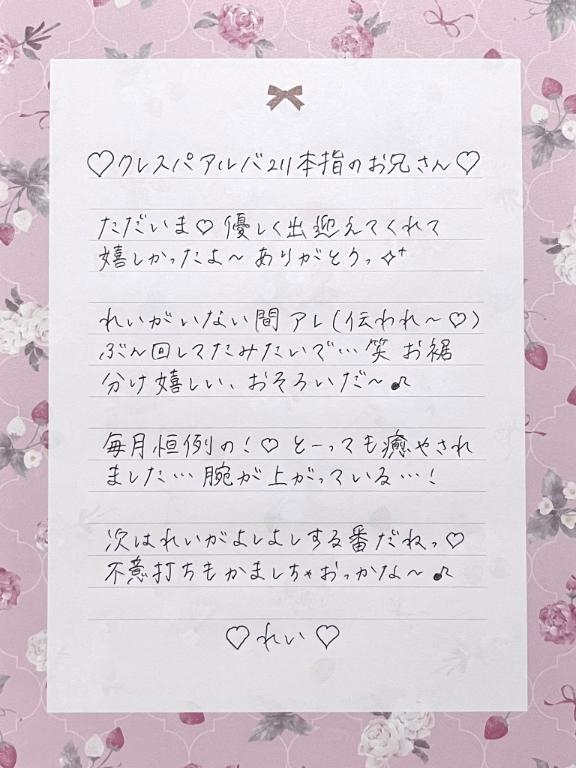 ♡クレスパアルバ211本指のお兄さん♡
ただいま♡優しく出迎えてくれて
嬉しかったよ〜ありがとうっ✧⁺
れいがいない間アレ(伝われ〜♡)
ぶん回してたみたいで…笑 お裾
分け嬉しい、おそろいだ〜♪
毎月恒例の!♡と一っても癒やされ
ました…腕が上がっている…!
次はれいがよしよしする番だねっ♡
不意打ちもかましちゃおっかな〜♪
♡れい♡